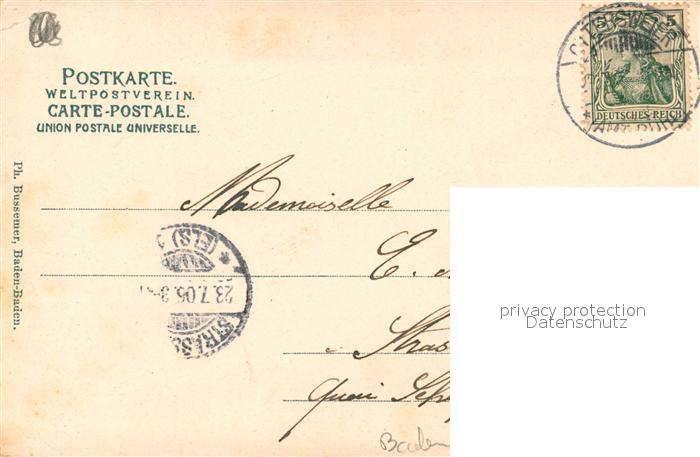 POSTKARTE.
WELTPOSTVEREIN.
CARTE-POSTALE.
UNION POSTALE UNIVERSELLE.
5
DEUTSCHES REICH
Ph. Bussemer, Baden-Baden.
Mademoiselle
E.
(ELS)
23.7.06.
STRASS
Stras
Quai
privacy protection
Datenschutz
Baden